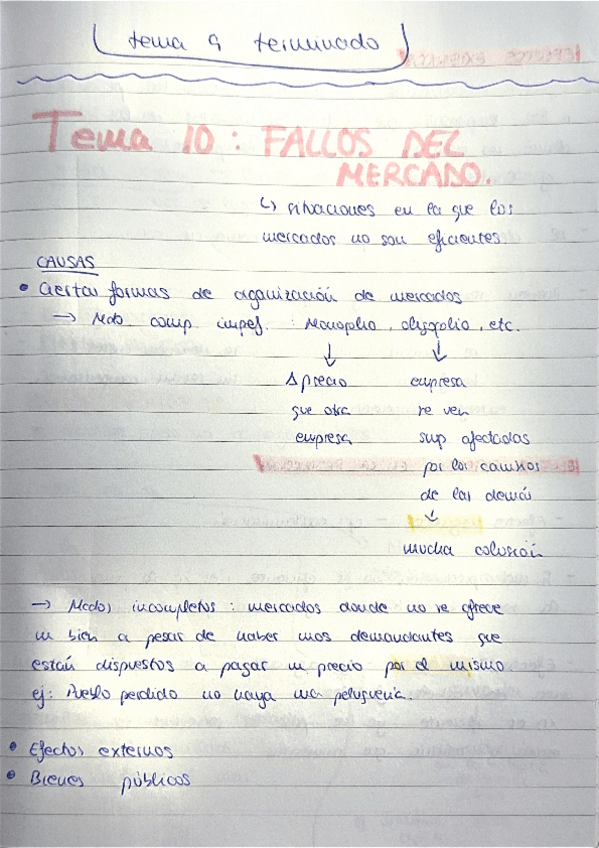 tema 9 terminado
Tema 10: FALLOS DEL
MERCADO.
↳ situaciones en la que los
mercados no son eficientes
CAUSAS
• Ciertas formas de organización de mercados
→ Mdo comp impef. : Monoplio, oligoplio, etc.
↓ ↓
Δ precio empresa
que otra se ven
empresa sup afectadas
por los cambios
de las demás
↓
mucha colusión
→ Mcdos incompletos : mercados donde no se ofrece
un bien a pesar de haber unos demandantes que
están dispuestos a pagar un precio por el mismo
ej: Pueblo perdido no haya una peluquería.
• Efectos externos
• Bienes públicos